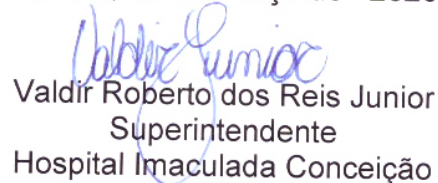 Valdir Junior
Valdir Roberto dos Reis Junior
Superintendente
Hospital Imaculada Conceição